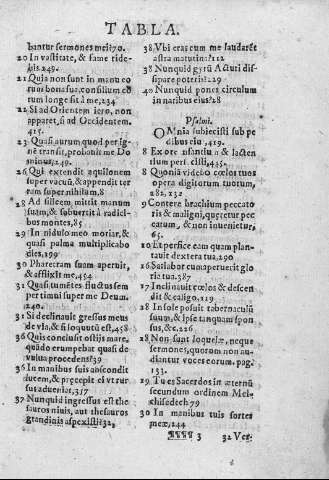 TABLA.
bantur sermones mei?70.
20 In vastitate, & fame ride-
bis.249.
21 Quia non sunt in manu eo
rum bona sua: consilium eo
rum longe sit à me,234
22 Si ad Orientem iero, non
apparet, si ad Occidentem.
415.
23 Quasi aurum quod per ig-
nē transit, probauit me Do
minus,249.
26 Qui extendit aquilonem
super vacuū, & appendit ter
ram super nihilum,8
28 Ad silicem mittit manum
suam, & subvertit à radici-
bus montes,85
29 In nidulo meo moriar, &
quasi palma multiplicabo
dies,199
30 Pharetram suam aperuit,
& afflixit me,454
31 Quasi tumētes fluctus sem
per timui super me Deum.
240.
31 Si declinauit gressus meus
de via, & si sequutū est,458
36 Quis conclusit ostijs mare.
quādo erumpebat quasi de
vulua procedens?39
36 In manibus suis abscondit
lucem, & præcepit ei vt rur
sus adueniat,357
37 Nunquid ingressus est the
sauros niuis, aut thesauros
grandinis aspexisti?32,
38 Vbi eras cum me laudarēt
astra matutina?112
38 Nunquid gyrū Arcturi dis-
sipare poteris?29.
40 Nunquid pones circulum
in naribus eius?28
Psalmi.
OMnia subiecisti sub pe
dibus eius,419.
8 Ex ore infantiū & lacten
tium perfecisti,435.
8 Quoniā videbo cœlos tuos
opera digitorum tuorum,
282.232
9 Contere brachium peccato
ris & maligni, quæretur pec
catum, & non inuenietur,
65.
10 Et perfice eam quam plan-
tauit dextera tua,290
16 Satiabor cum aperuerit glo
ria tua,387
17 Inclinauit cœlos & descen-
dit & caligo,119
18 In sole posuit tabernaculū
suum, & ipse tanquam spon
sus, &c.226
18 Non sunt loquelæ, neque
sermones, quorum non au-
diantur voces eorum. pag.
133.
29 Tu es Sacerdos in æternū
secundum ordinem Mel-
chisedech 79
30 In manibus tuis sortes
meæ,244
¶¶¶¶ 3 32 Ver-